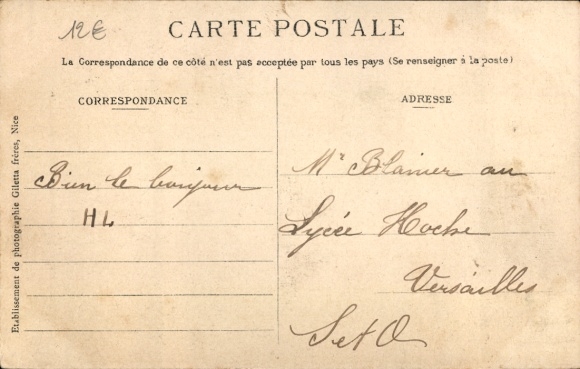 12€
CARTE POSTALE
La Correspondance de ce côté n'est pas acceptée par tous les pays (Se renseigner à la poste)
CORRESPONDANCE
Bien le bonjour
HL
ADRESSE
Mr Blamier au
Lycée Hoche
Versailles
S et O
Etablissement de photographie Giletta frères, Nice